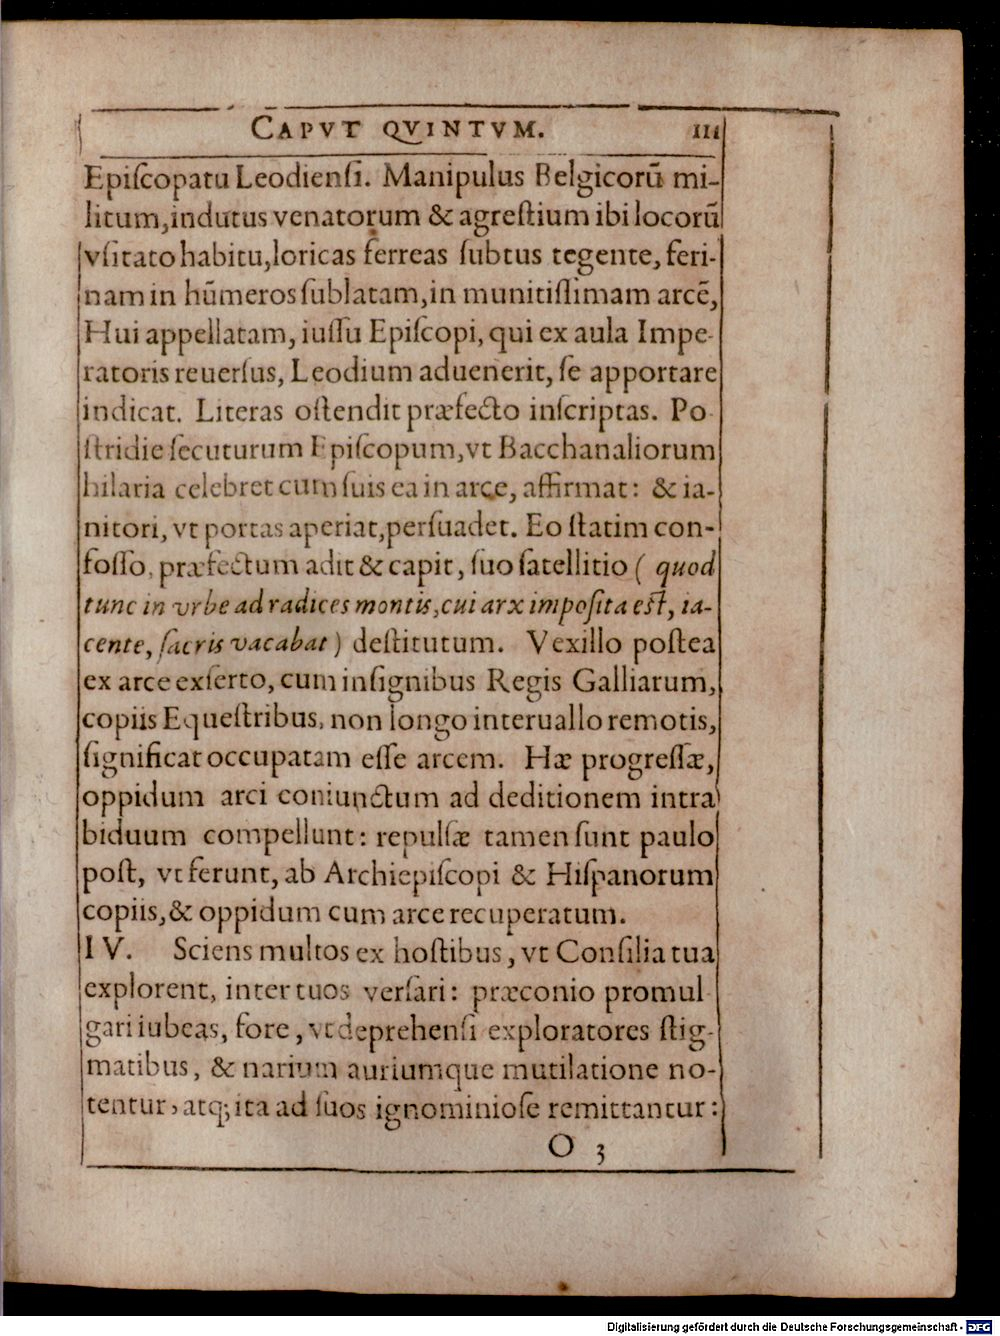 CAPVT QVINTVM. 111
Epiſcopatu Leodienſi. Manipulus Belgicorũ mi-
litum, indutus venatorum & agreſtium ibi locorũ
vſitato habitu, loricas ferreas ſubtus tegente, feri-
nam in hũmeros ſublatam, in munitiſſimam arcẽ,
Hui appellatam, iuſſu Epiſcopi, qui ex aula Impe-
ratoris reuerſus, Leodium aduenerit, ſe apportare
indicat. Literas oſtendit præfecto inſcriptas. Po-
ſtridie ſecuturum Epiſcopum, vt Bacchanaliorum
hilaria celebret cum ſuis ea in arce, affirmat: & ia-
nitori, vt portas aperiat, perſuadet. Eo ſtatim con-
foſſo, præfectum adit & capit, ſuo ſatellitio ( quod
tunc in vrbe ad radices montis, cui arx impoſita eſt, ia-
cente, ſacris vacabat ) deſtitutum. Vexillo poſtea
ex arce exſerto, cum inſignibus Regis Galliarum,
copiis Equeſtribus, non longo interuallo remotis,
ſignificat occupatam eſſe arcem. Hæ progreſſæ,
oppidum arci coniunctum ad deditionem intra
biduum compellunt: repulſæ tamen ſunt paulo
poſt, vt ferunt, ab Archiepiſcopi & Hiſpanorum
copiis, & oppidum cum arce recuperatum.
IV. Sciens multos ex hoſtibus, vt Conſilia tua
explorent, inter tuos verſari: præconio promul-
gari iubeas, fore, vt deprehenſi exploratores ſtig-
matibus, & narium auriumque mutilatione no-
tentur, atq; ita ad ſuos ignominioſe remittantur:
O 3
Digitalisierung gefördert durch die Deutsche Forschungsgemeinschaft - DFG